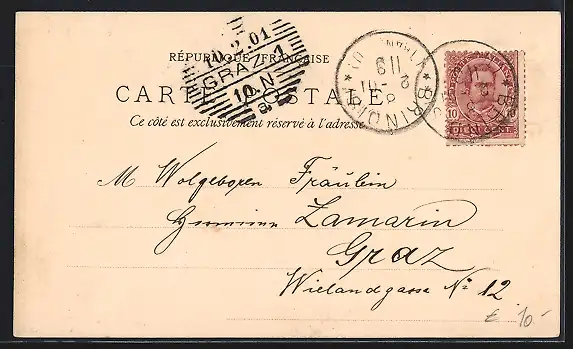 RÉPUBLIQUE FRANÇAISE
CARTE POSTALE
Ce côté est exclusivement réservé à l'adresse
10.2.01
GRAZ 1
10.N
BRINDISI
10
10
DIECI CENT
M Wolgeboren Fräulein
Zamarin
Graz
Wielandgasse № 12
€ 10-